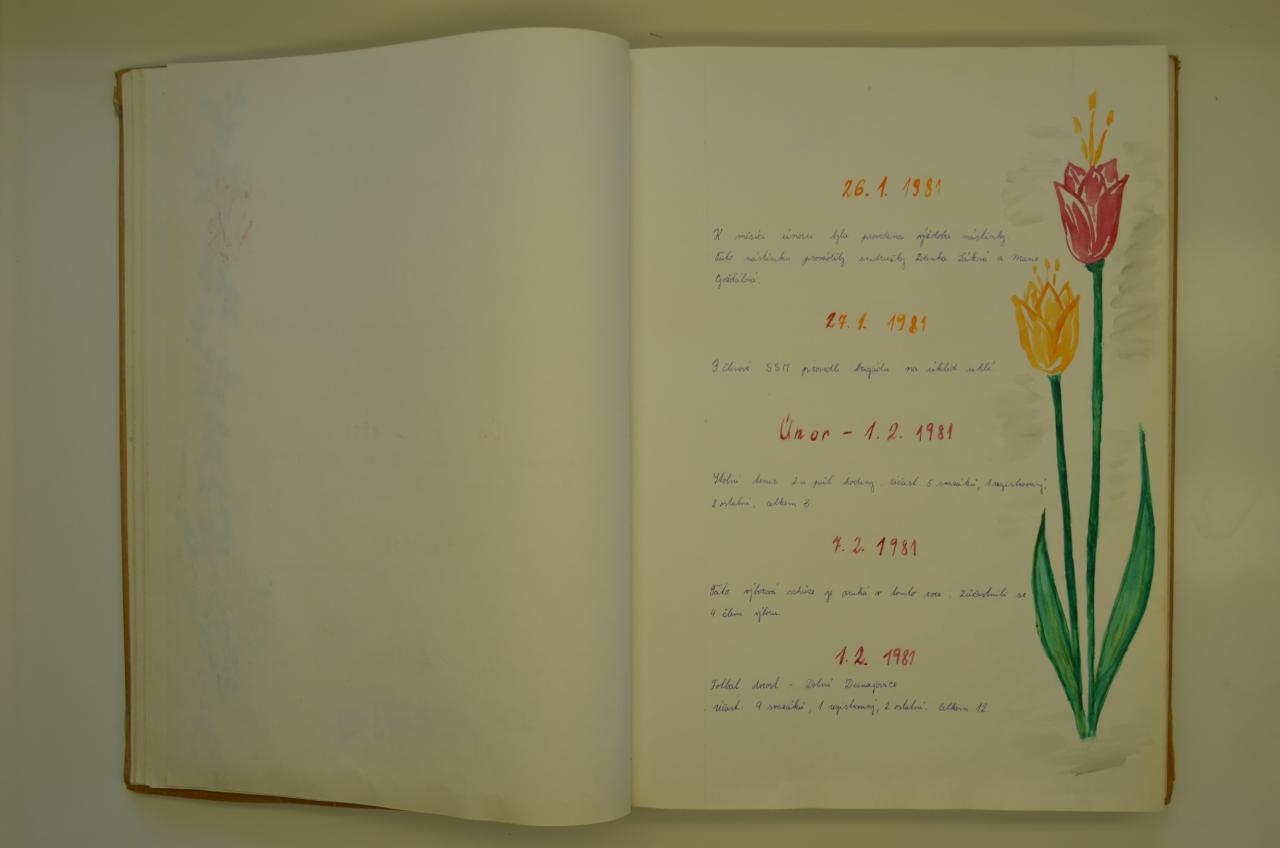 26. 1. 1981
K měsíci únoru byla provedena výzdoba nástěnky.
Tuto nástěnku prováděly soudružky Zdenka a
27. 1. 1981
3 členové SSM provedli brigádu na úklid uhlí.
Únor - 1. 2. 1981
Stolní tenis 2 a půl hodiny. účast: 5 svazáků, 1 registrovaný,
2 ostatní, celkem 8.
7. 2. 1981
Tato výborová schůze je druhá v tomto roce. Zúčastnili se
4 členi výboru.
1. 2. 1981
Fotbal dorost - Dolní Dunajovice
účast: 9 svazáků, 1 registrovaný, 2 ostatní. Celkem 12.